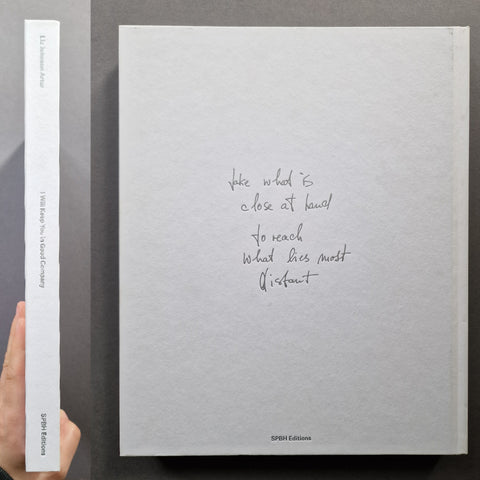 Liz Johnson Artur
I Will Keep You In Good Company
SPBH Editions
take what is
close at hand
to reach
what lies most
distant
SPBH Editions